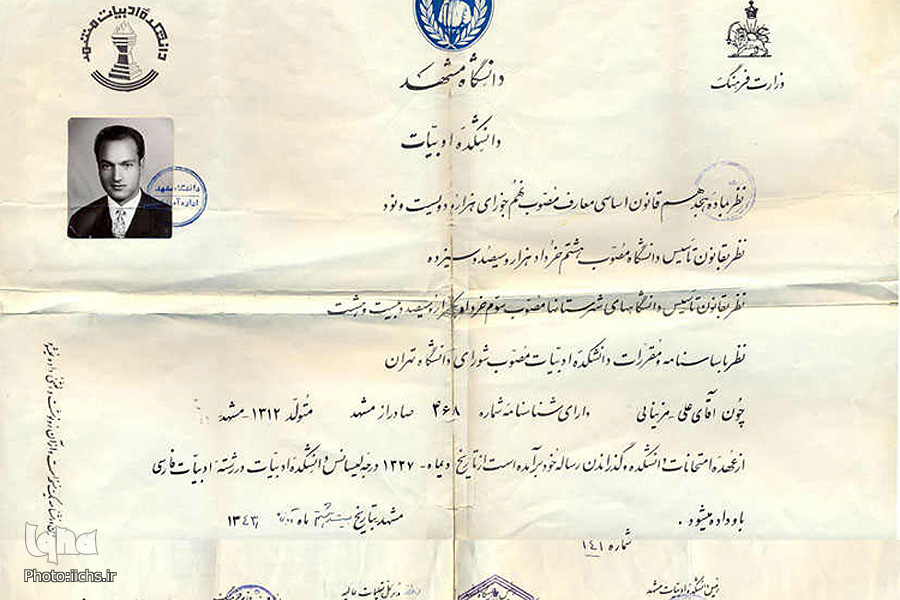 دانشکدهٔ ادبیات مشهد
وزارت فرهنگ
دانشگاه مشهد
دانشکدهٔ ادبیات
دانشگاه مشهد
نظر بماده هیجدهم قانون اساسی معارف مصوب نهم جوزای هزار و دویست و نود
نظر بقانون تأسیس دانشگاه مصوب هشتم خرداد هزار و سیصد و سیزده
نظر بقانون تأسیس دانشگاههای شهرستانها مصوب سوم خرداد یکهزار و سیصد و بیست و هشت
نظر باساسنامه و مقررات دانشکدهٔ ادبیات مصوب شورای دانشگاه تهران
چون آقای علی مزینانی دارای شناسنامه شماره ۴۶۸ صادر از مشهد متولد ۱۳۱۲ مشهد
از عهده امتحانات دانشکده و گذراندن رساله خود برآمده است از تاریخ دیماه ۱۳۳۷ درجه لیسانس دانشکدهٔ ادبیات در رشته ادبیات فارسی
باو داده میشود.
مشهد بتاریخ ماه
شماره ۱۴۱
رئیس دانشکده ادبیات مشهد
Iqna
Photo:iichs.ir